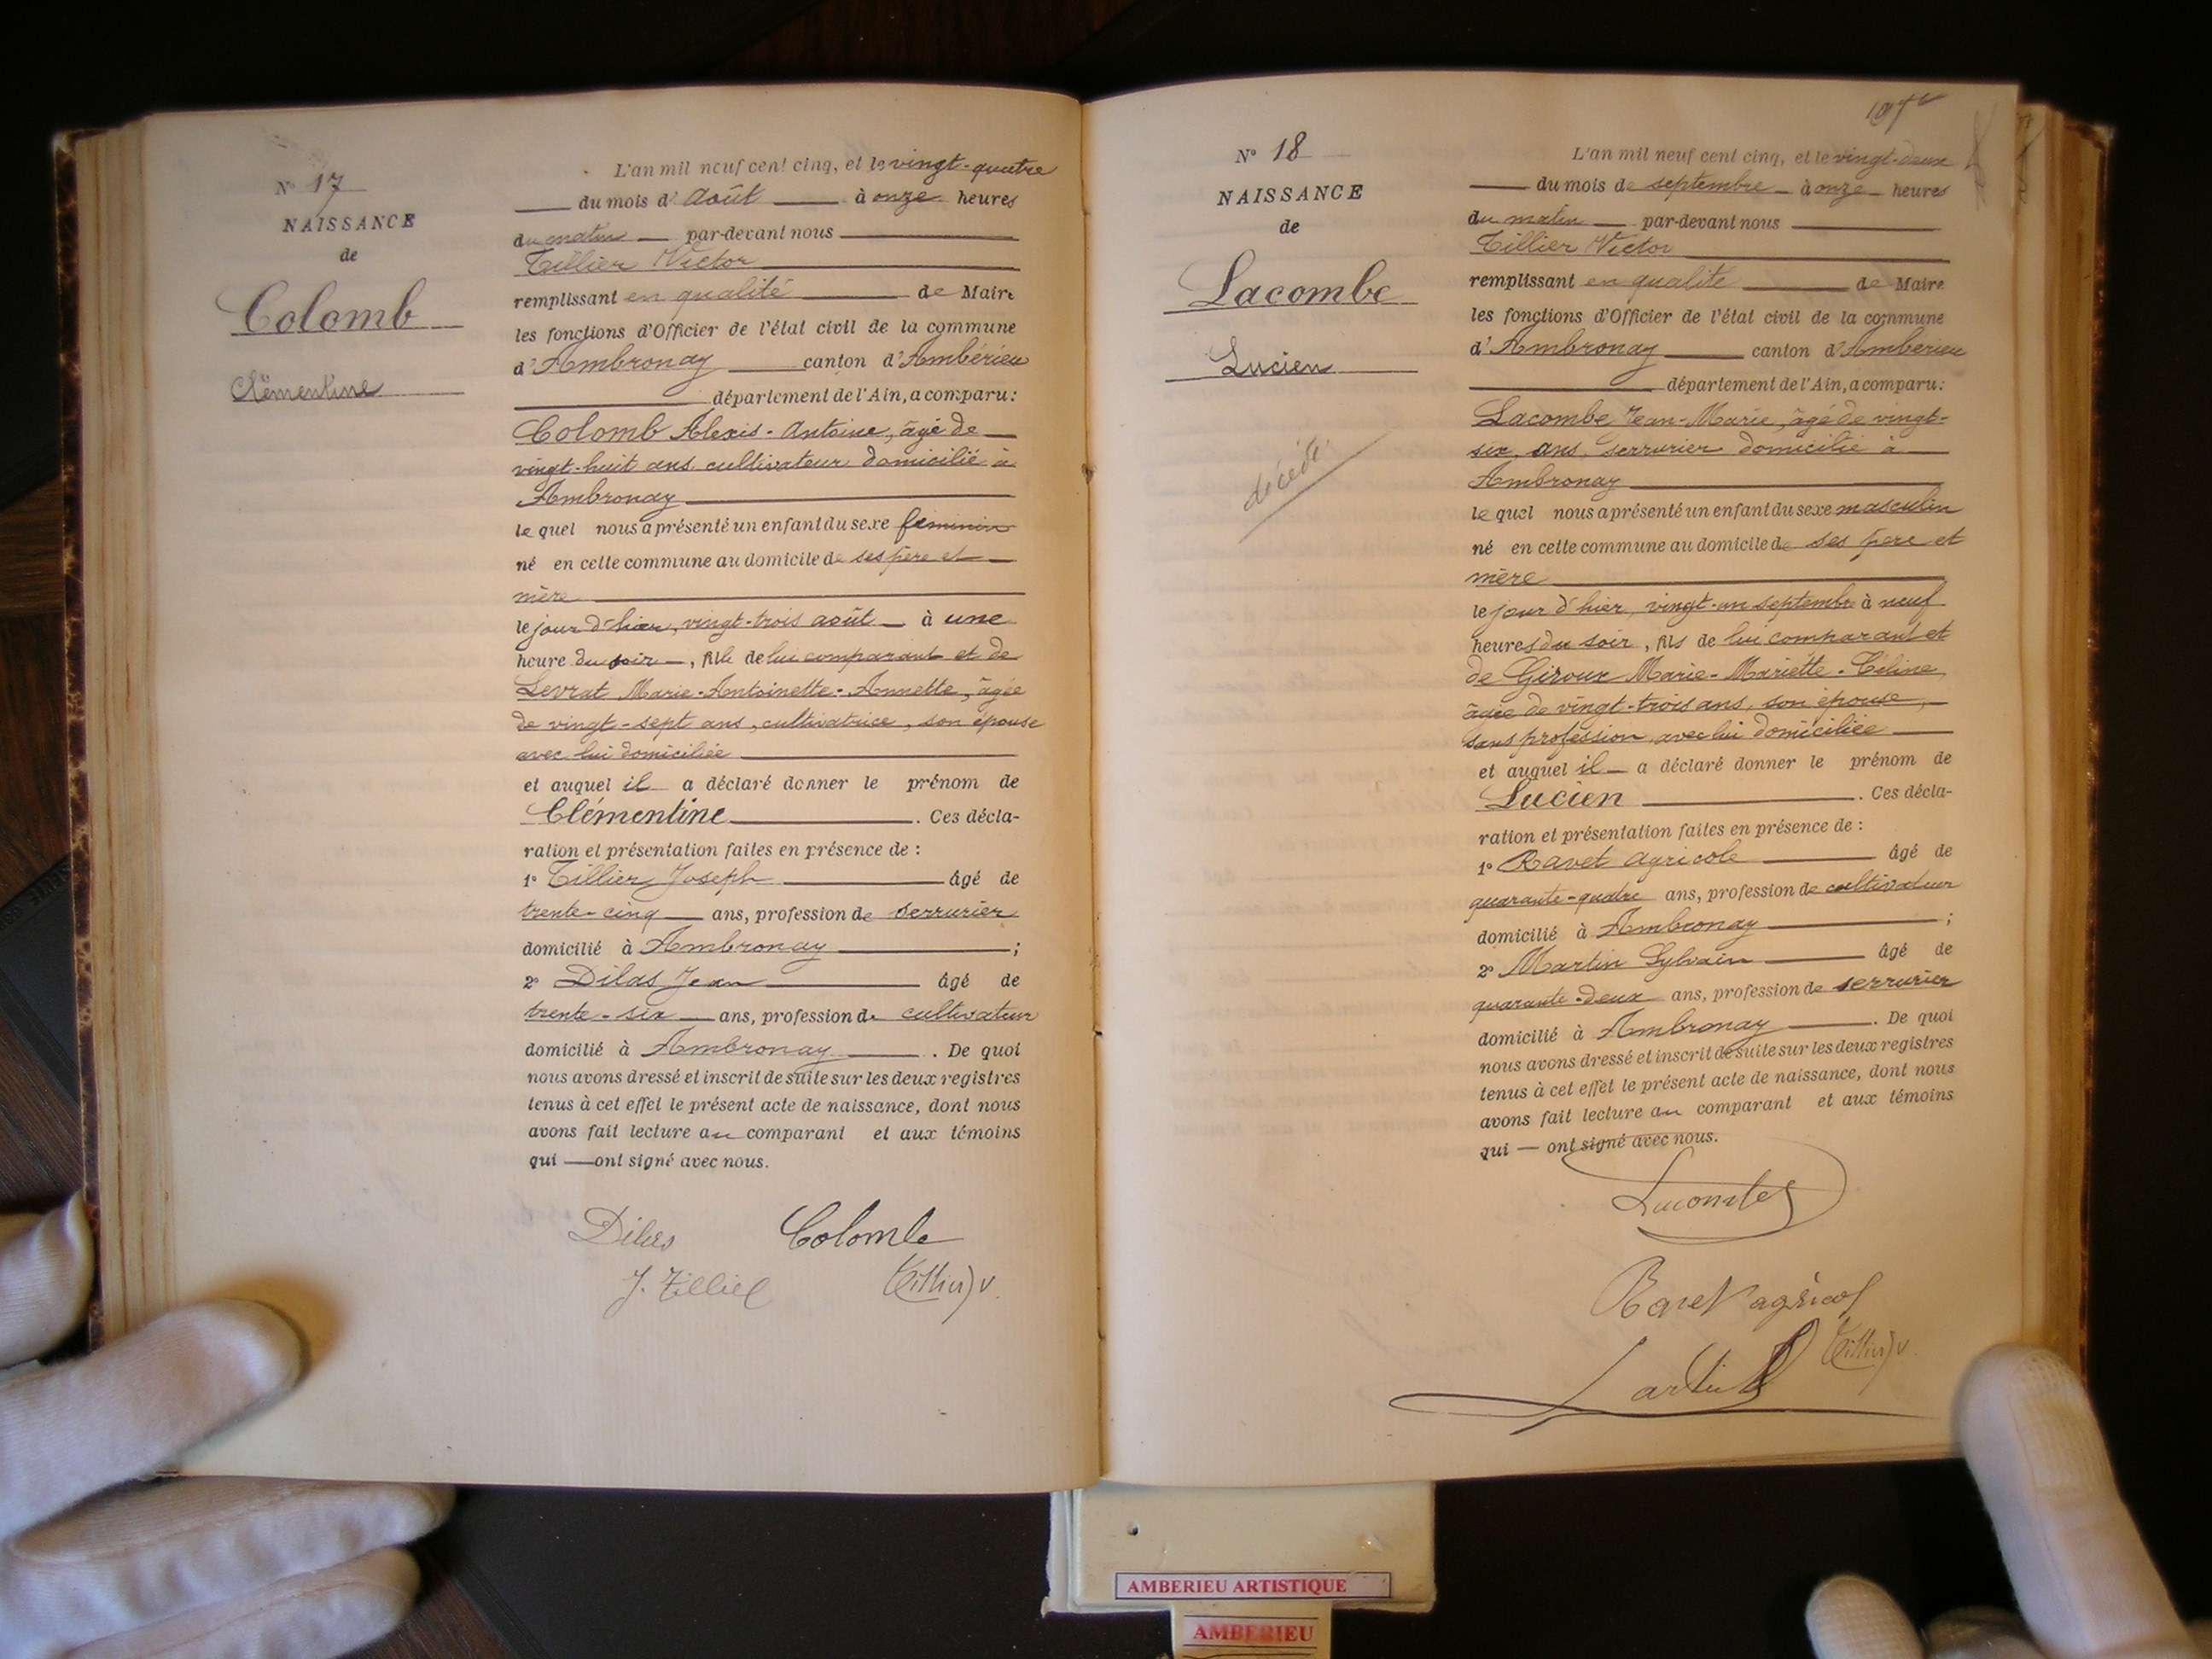 N° 17
NAISSANCE
de
Colomb
Clémentine
L'an mil neuf cent cinq, et le vingt-quatre
du mois d'Août à onze heures
du matin par-devant nous
Tillier Victor
remplissant en qualité de Maire
les fonctions d'Officier de l'état civil de la commune
d'Ambronay canton d'Ambérieu
département de l'Ain, a comparu:
Colomb Alexis-Antoine, âgé de
vingt-huit ans cultivateur domicilié à
Ambronay
lequel nous a présenté un enfant du sexe féminin
né en cette commune au domicile de ses père et
mère
le jour d'hier, vingt-trois août à une
heure du soir, fille de lui comparant et de
Levrat Marie-Antoinette-Annette, âgée
de vingt-sept ans, cultivatrice, son épouse
avec lui domiciliée
et auquel il a déclaré donner le prénom de
Clémentine. Ces décla-
ration et présentation faites en présence de :
1° Tillier Joseph âgé de
trente-cinq ans, profession de serrurier
domicilié à Ambronay ;
2° Dilas Jean âgé de
trente-six ans, profession de cultivateur
domicilié à Ambronay. De quoi
nous avons dressé et inscrit de suite sur les deux registres
tenus à cet effet le présent acte de naissance, dont nous
avons fait lecture au comparant et aux témoins
qui — ont signé avec nous.
Dilas Colomb
J. Tillier Tillier V.
N° 18
NAISSANCE
de
Lacombe
Lucien
décédé
L'an mil neuf cent cinq, et le vingt-deux
du mois de septembre à onze heures
du matin par-devant nous
Tillier Victor
remplissant en qualité de Maire
les fonctions d'Officier de l'état civil de la commune
d'Ambronay canton d'Ambérieu
département de l'Ain, a comparu:
Lacombe Jean-Marie, âgé de vingt-
six ans, serrurier domicilié à
Ambronay
lequel nous a présenté un enfant du sexe masculin
né en cette commune au domicile de ses père et
mère
le jour d'hier, vingt-un septembre à neuf
heures du soir, fils de lui comparant et
de Giroux Marie-Mariette-Céline,
âgée de vingt-trois ans, son épouse,
sans profession avec lui domiciliée
et auquel il a déclaré donner le prénom de
Lucien. Ces décla-
ration et présentation faites en présence de :
1° Ravet Agricole âgé de
quarante-quatre ans, profession de cultivateur
domicilié à Ambronay ;
2° Martin Sylvain âgé de
quarante-deux ans, profession de serrurier
domicilié à Ambronay. De quoi
nous avons dressé et inscrit de suite sur les deux registres
tenus à cet effet le présent acte de naissance, dont nous
avons fait lecture au comparant et aux témoins
qui — ont signé avec nous.
Lacombe
Ravet agricol
Tillier V.
AMBERIEU ARTISTIQUE
AMBERIEU